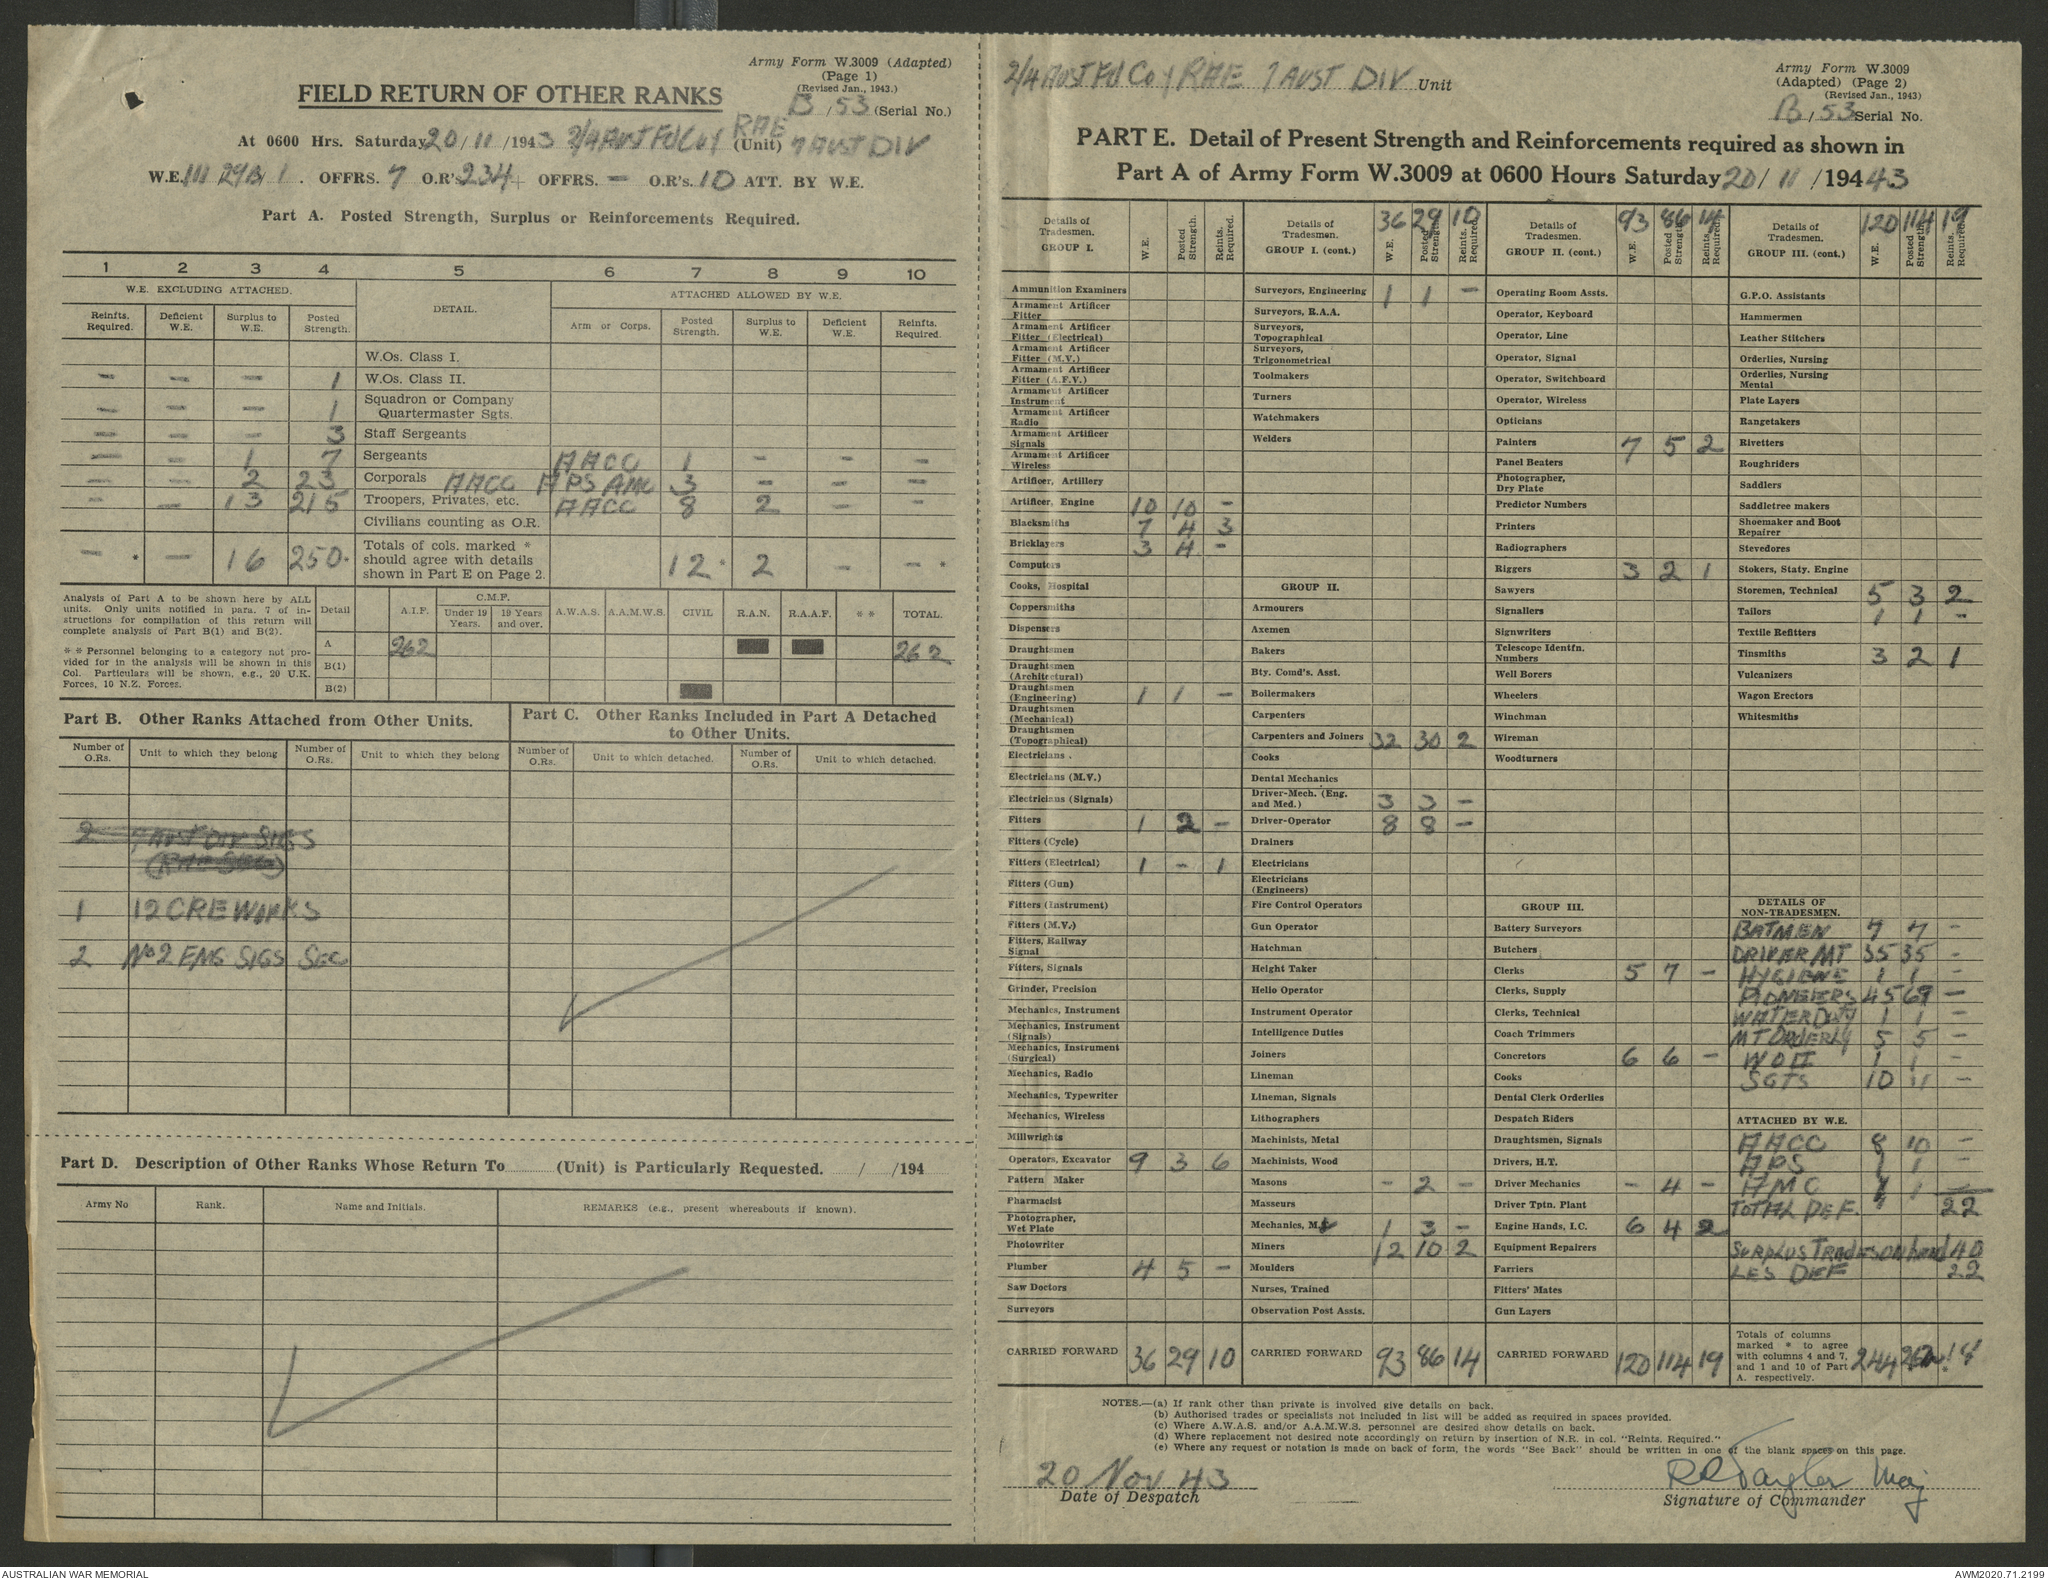 Army Form W.3009 (Adapted)
(Page 1)
(Revised Jan., 1943.)
FIELD RETURN OF OTHER RANKS
B/53 (Serial No.)
At 0600 Hrs. Saturday 20/11/1943 2/4 AUST FD COY RAE (Unit) 7 AUST DIV
W.E. III 29B 1. OFFRS. 7 O.R's 234 + OFFRS. — O.R's. 10 ATT. BY W.E.
Part A. Posted Strength, Surplus or Reinforcements Required.
1 2 3 4 5 6 7 8 9 10
W.E. EXCLUDING ATTACHED. DETAIL. ATTACHED ALLOWED BY W.E.
Reinfts. Required. Deficient W.E. Surplus to W.E. Posted Strength. Arm or Corps. Posted Strength. Surplus to W.E. Deficient W.E. Reinfts. Required.
W.Os. Class I.
— — — 1 W.Os. Class II.
— — — 1 Squadron or Company Quartermaster Sgts.
— — — 3 Staff Sergeants
— — 1 7 Sergeants AACC 1 — — —
— — 2 23 Corporals AACC APS AMC 3 — — —
— — 13 215 Troopers, Privates, etc. AACC 8 2 — —
Civilians counting as O.R.
— * — 16 250 * Totals of cols. marked * should agree with details shown in Part E on Page 2. 12 * 2 — — *
Analysis of Part A to be shown here by ALL units. Only units notified in para. 7 of instructions for compilation of this return will complete analysis of Part B(1) and B(2).
* * Personnel belonging to a category not provided for in the analysis will be shown in this Col. Particulars will be shown, e.g., 20 U.K. Forces, 10 N.Z. Forces.
Detail A.I.F. C.M.F. Under 19 Years. 19 Years and over. A.W.A.S. A.A.M.W.S. CIVIL R.A.N. R.A.A.F. * * TOTAL.
A 262 262
B(1)
B(2)
Part B. Other Ranks Attached from Other Units.
Number of O.Rs. Unit to which they belong Number of O.Rs. Unit to which they belong
2 7 AUST DIV SIGS
(RAE SEC)
1 12 CRE WORKS
2 No 2 ENG SIGS SEC
Part C. Other Ranks Included in Part A Detached to Other Units.
Number of O.Rs. Unit to which detached. Number of O.Rs. Unit to which detached.
Part D. Description of Other Ranks Whose Return To (Unit) is Particularly Requested. / /194
Army No Rank. Name and Initials. REMARKS (e.g., present whereabouts if known).
2/4 AUST FD COY RAE 7 AUST DIV Unit
Army Form W.3009
(Adapted) (Page 2)
(Revised Jan., 1943)
B/53 Serial No.
PART E. Detail of Present Strength and Reinforcements required as shown in
Part A of Army Form W.3009 at 0600 Hours Saturday 20/11/194 43
Details of Tradesmen. GROUP I. W.E. Posted Strength. Reints. Required.
Ammunition Examiners
Armament Artificer Fitter
Armament Artificer Fitter (Electrical)
Armament Artificer Fitter (M.V.)
Armament Artificer Fitter (A.F.V.)
Armament Artificer Instrument
Armament Artificer Radio
Armament Artificer Signals
Armament Artificer Wireless
Artificer, Artillery
Artificer, Engine 10 10 —
Blacksmiths 7 4 3
Bricklayers 3 4 —
Computors
Cooks, Hospital
Coppersmiths
Dispensers
Draughtsmen
Draughtsmen (Architectural)
Draughtsmen (Engineering) 1 1 —
Draughtsmen (Mechanical)
Draughtsmen (Topographical)
Electricians .
Electricians (M.V.)
Electricians (Signals)
Fitters 1 2 —
Fitters (Cycle)
Fitters (Electrical) 1 — 1
Fitters (Gun)
Fitters (Instrument)
Fitters (M.V.)
Fitters, Railway Signal
Fitters, Signals
Grinder, Precision
Mechanics, Instrument
Mechanics, Instrument (Signals)
Mechanics, Instrument (Surgical)
Mechanics, Radio
Mechanics, Typewriter
Mechanics, Wireless
Millwrights
Operators, Excavator 9 3 6
Pattern Maker
Pharmacist
Photographer, Wet Plate
Photowriter
Plumber 4 5 —
Saw Doctors
Surveyors
CARRIED FORWARD 36 29 10
Details of Tradesmen. GROUP I. (cont.) 36 W.E. 29 Posted Strength. 10 Reints. Required.
Surveyors, Engineering 1 1 —
Surveyors, R.A.A.
Surveyors, Topographical
Surveyors, Trigonometrical
Toolmakers
Turners
Watchmakers
Welders
GROUP II.
Armourers
Axemen
Bakers
Bty. Comd's. Asst.
Boilermakers
Carpenters
Carpenters and Joiners 32 30 2
Cooks
Dental Mechanics
Driver-Mech. (Eng. and Med.) 3 3 —
Driver-Operator 8 8 —
Drainers
Electricians
Electricians (Engineers)
Fire Control Operators
Gun Operator
Hatchman
Height Taker
Helio Operator
Instrument Operator
Intelligence Duties
Joiners
Lineman
Lineman, Signals
Lithographers
Machinists, Metal
Machinists, Wood
Masons — 2 —
Masseurs
Mechanics, M.V. 1 3 —
Miners 12 10 2
Moulders
Nurses, Trained
Observation Post Assts.
CARRIED FORWARD 93 86 14
Details of Tradesmen. GROUP II. (cont.) 93 W.E. 86 Posted Strength. 14 Reints. Required.
Operating Room Assts.
Operator, Keyboard
Operator, Line
Operator, Signal
Operator, Switchboard
Operator, Wireless
Opticians
Painters 7 5 2
Panel Beaters
Photographer, Dry Plate
Predictor Numbers
Printers
Radiographers
Riggers 3 2 1
Sawyers
Signallers
Signwriters
Telescope Identfn. Numbers
Well Borers
Wheelers
Winchman
Wireman
Woodturners
GROUP III.
Battery Surveyors
Butchers
Clerks 5 7 —
Clerks, Supply
Clerks, Technical
Coach Trimmers
Concretors 6 6 —
Cooks
Dental Clerk Orderlies
Despatch Riders
Draughtsmen, Signals
Drivers, H.T.
Driver Mechanics — 4 —
Driver Tptn. Plant
Engine Hands, I.C. 6 4 2
Equipment Repairers
Farriers
Fitters' Mates
Gun Layers
CARRIED FORWARD 120 114 19
Details of Tradesmen. GROUP III. (cont.) 120 W.E. 114 Posted Strength. 19 Reints. Required.
G.P.O. Assistants
Hammermen
Leather Stitchers
Orderlies, Nursing
Orderlies, Nursing Mental
Plate Layers
Rangetakers
Rivetters
Roughriders
Saddlers
Saddletree makers
Shoemaker and Boot Repairer
Stevedores
Stokers, Staty. Engine
Storemen, Technical 5 3 2
Tailors 1 1 —
Textile Refitters
Tinsmiths 3 2 1
Vulcanizers
Wagon Erectors
Whitesmiths
DETAILS OF NON-TRADESMEN.
BATMEN 7 7 —
DRIVER MT 35 35 —
HYGIENE 1 1 —
PIONEERS 45 69 —
WATER DUTY 1 1 —
MT ORDERLY 5 5 —
WO II 1 1 —
SGTS 10 11 —
ATTACHED BY W.E.
AACC 8 10 —
APS 1 1 —
AMC 1 1 —
TOTAL DEF. 22
SURPLUS TRADES ON hand 40
LES DEF 22
Totals of columns marked * to agree with columns 4 and 7, and 1 and 10 of Part A. respectively. 244 18
NOTES.—(a) If rank other than private is involved give details on back.
(b) Authorised trades or specialists not included in list will be added as required in spaces provided.
(c) Where A.W.A.S. and/or A.A.M.W.S. personnel are desired show details on back.
(d) Where replacement not desired note accordingly on return by insertion of N.R. in col. "Reints. Required."
(e) Where any request or notation is made on back of form, the words "See Back" should be written in one of the blank spaces on this page.
20 Nov 43
Date of Despatch
Maj
Signature of Commander
AUSTRALIAN WAR MEMORIAL
AWM2020.71.2199